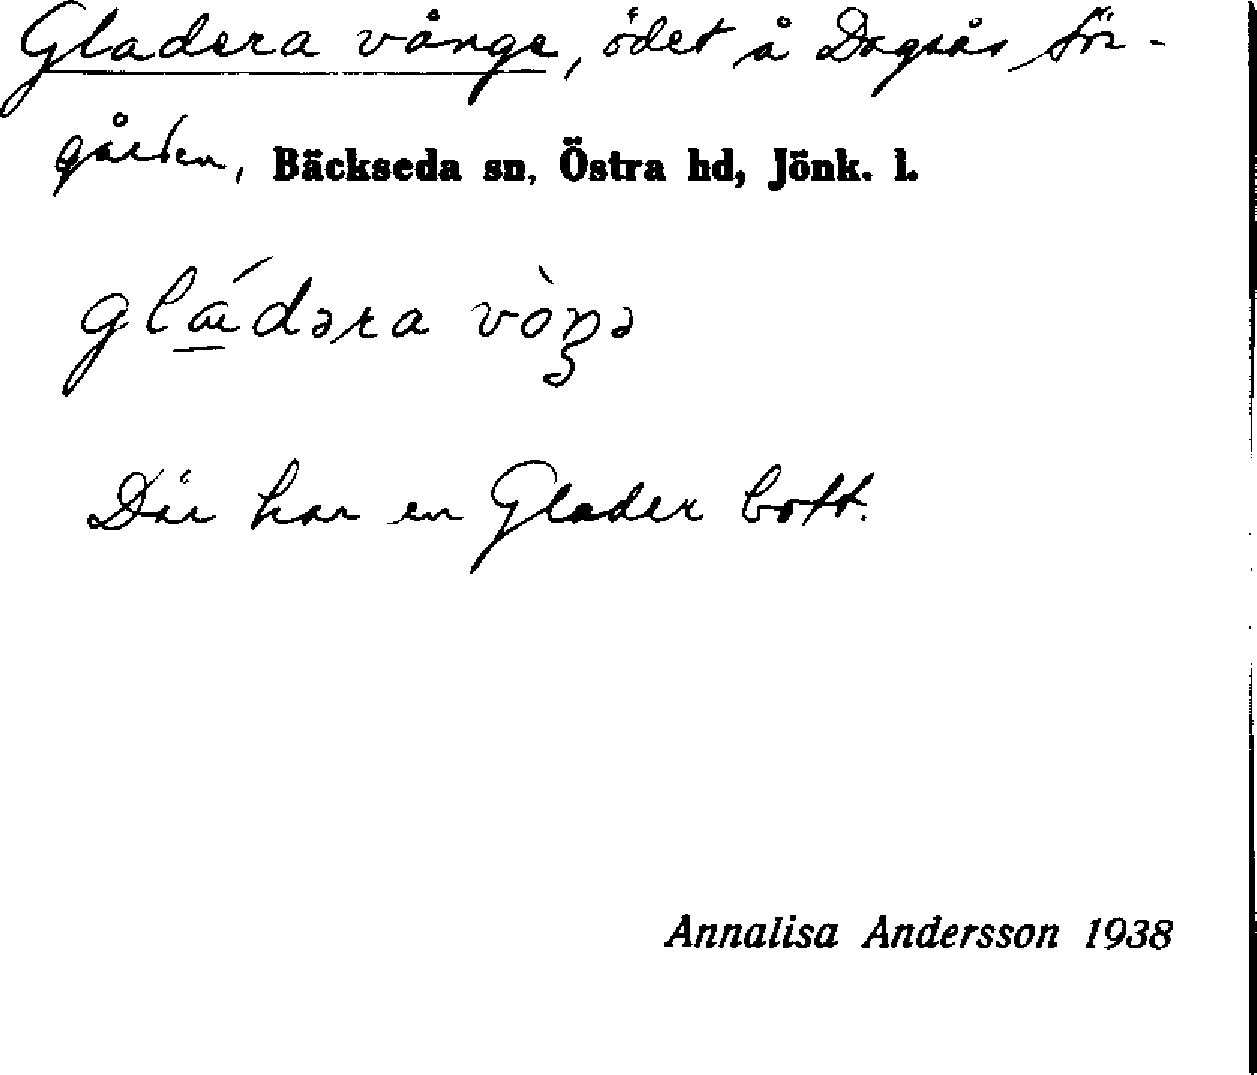 Gladera vånge, ödet å Dagsås Sör-
gården, Bäckseda sn, Östra hd, Jönk. l.
vòŋə
Där har en Glader bott.
Annalisa Andersson 1938